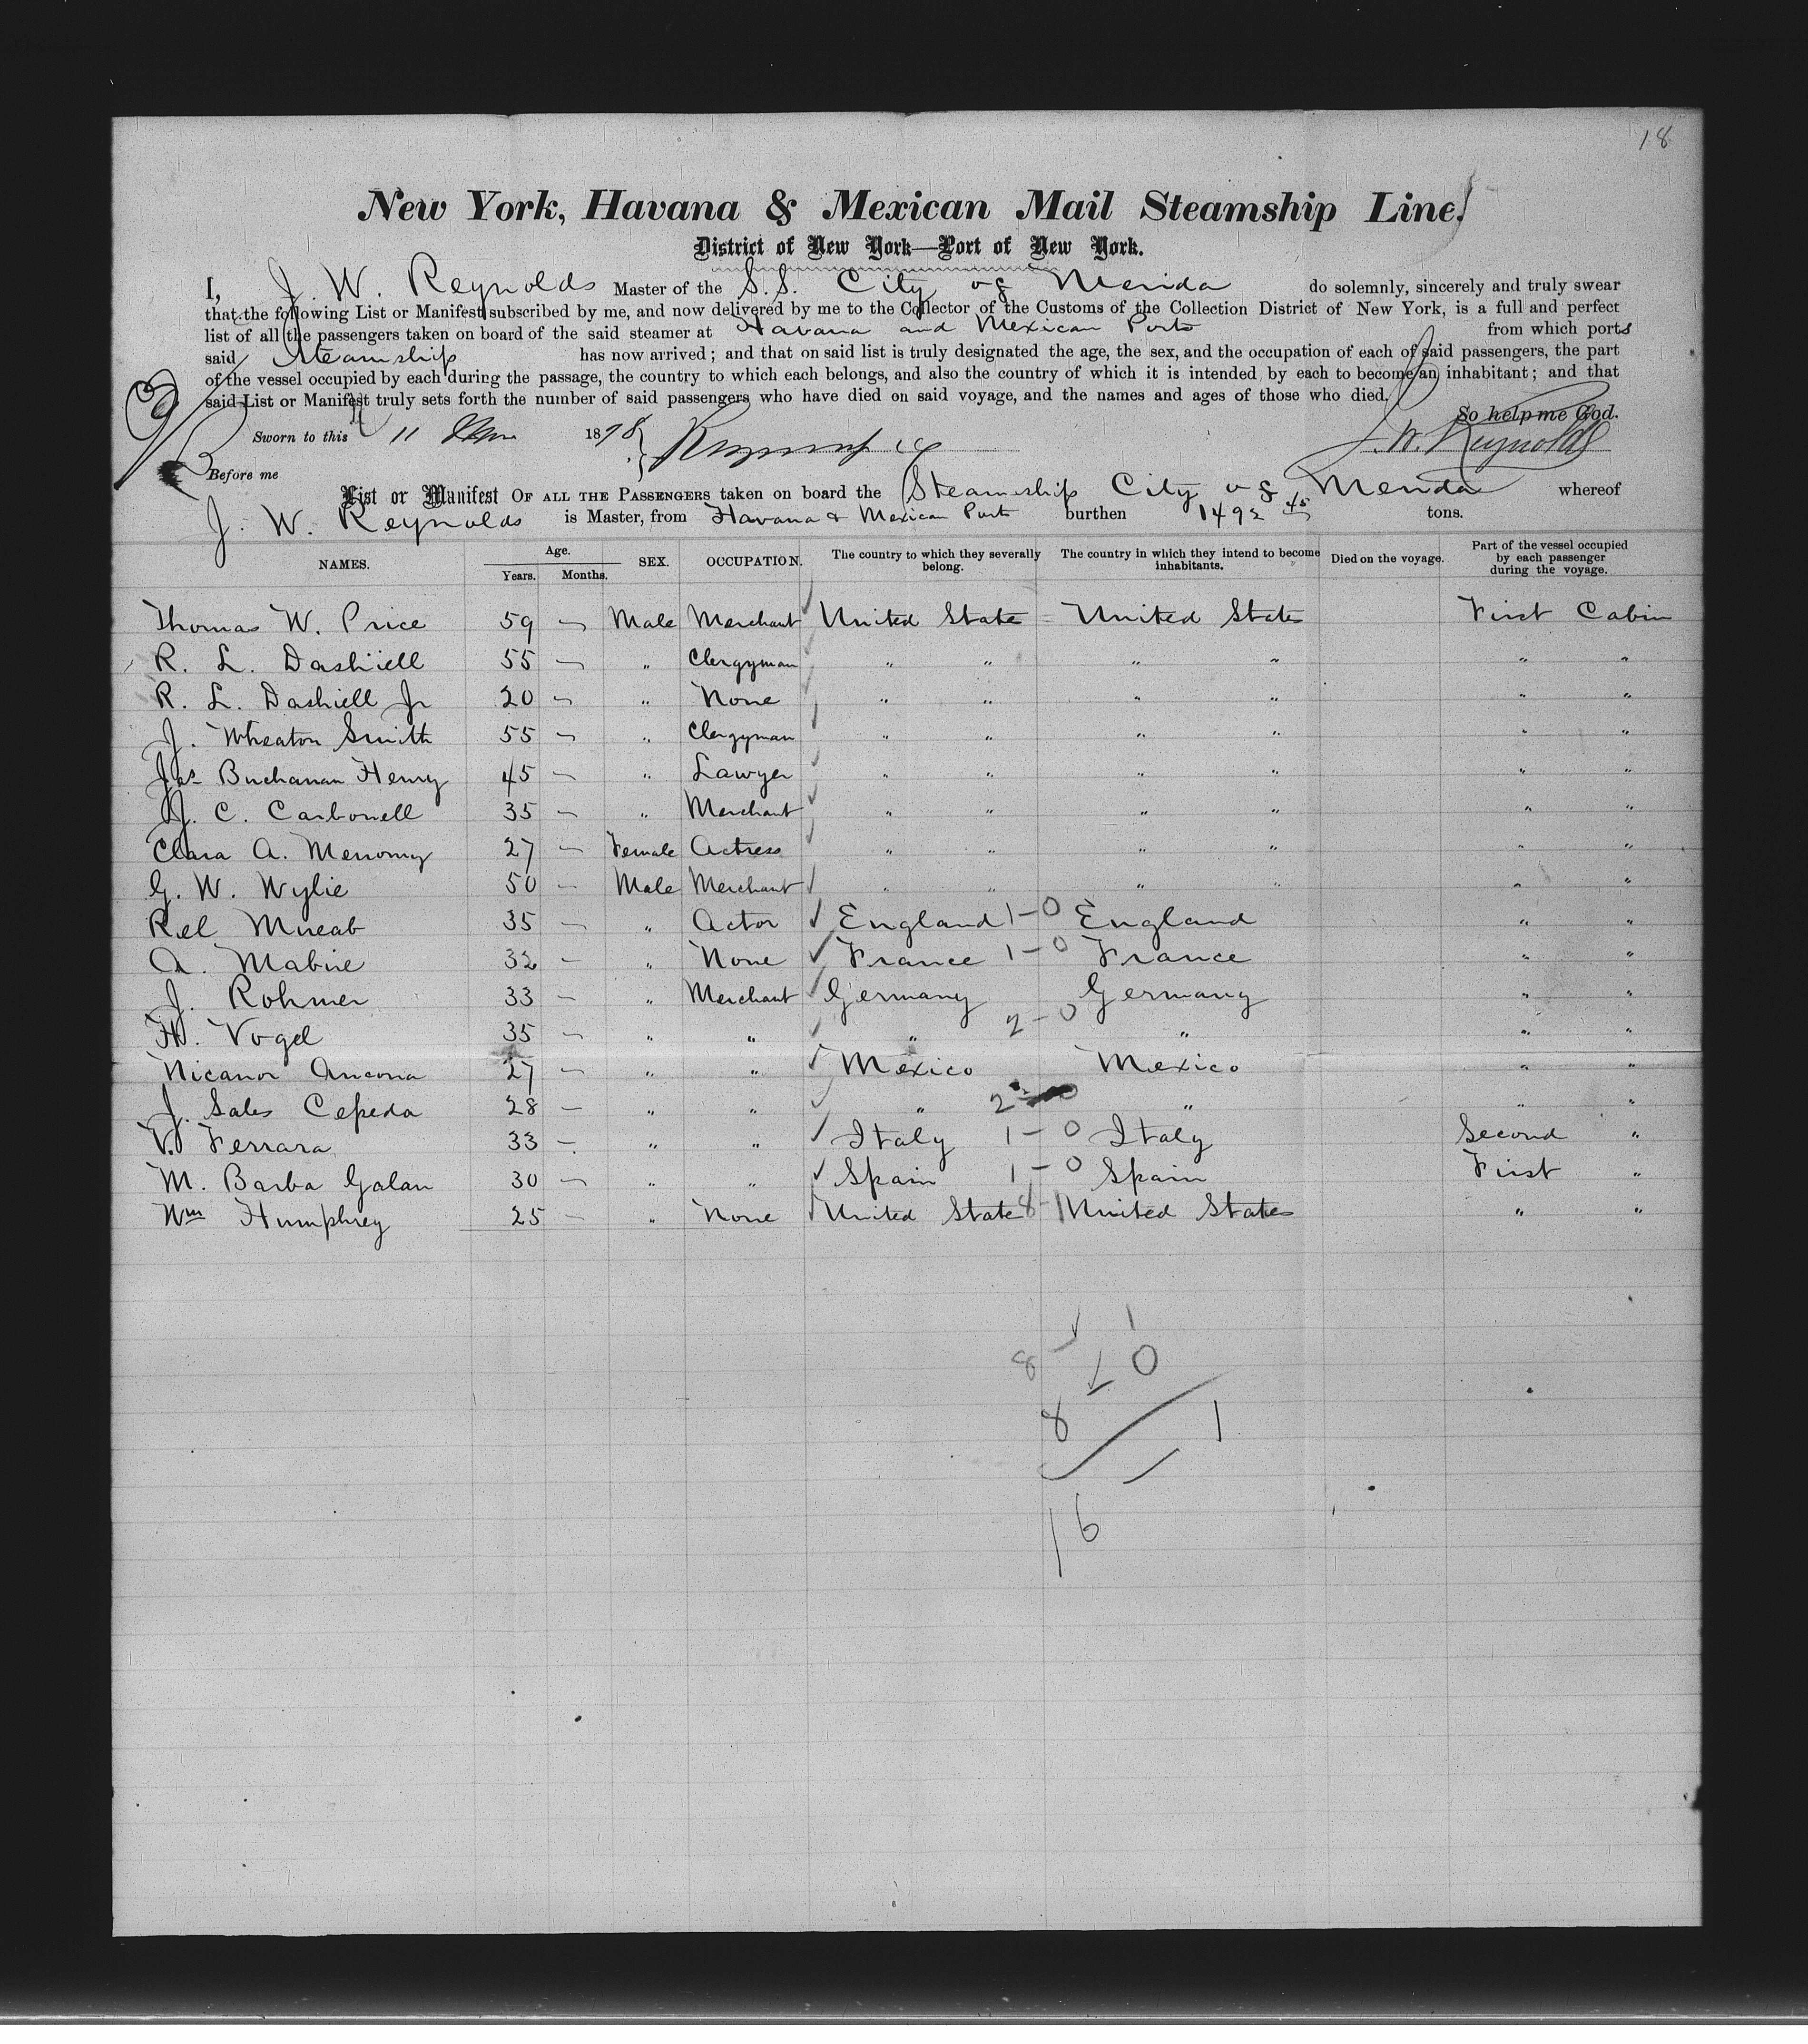 18
New York, Havana & Mexican Mail Steamship Line,
District of New York—Port of New York.
I, J. W. Reynolds Master of the S.S. City of Merida do solemnly, sincerely and truly swear
that the following List or Manifest subscribed by me, and now delivered by me to the Collector of the Customs of the Collection District of New York, is a full and perfect
list of all the passengers taken on board of the said steamer at Havana and Mexican Ports from which ports
said Steamship has now arrived; and that on said list is truly designated the age, the sex, and the occupation of each of said passengers, the part
of the vessel occupied by each during the passage, the country to which each belongs, and also the country of which it is intended by each to become an inhabitant; and that
said List or Manifest truly sets forth the number of said passengers who have died on said voyage, and the names and ages of those who died.
So help me God.
Sworn to this 11 1878 J. W. Reynolds
Before me
List or Manifest OF ALL THE PASSENGERS taken on board the Steamship City of Merida whereof
J. W. Reynolds is Master, from Havana & Mexican Ports burthen 1492 45 tons.
NAMES. Age. Years. Months. SEX. OCCUPATION. The country to which they severally belong. The country in which they intend to become inhabitants. Died on the voyage. Part of the vessel occupied by each passenger during the voyage.
Thomas W. Price 59 — Male Merchant United State United States First Cabin
R. L. Dashiell 55 — " Clergyman " " " " " "
R. L. Dashiell Jr 20 — " None " " " " " "
J. Wheaton Smith 55 — " Clergyman " " " " " "
Jas Buchanan Henry 45 — " Lawyer " " " " " "
J. C. Carbonell 35 — " Merchant " " " " " "
Clara A. 27 — Female Actress " " " " " "
G. W. Wylie 50 — Male Merchant " " " " " "
35 — " Actor England 1-0 England " "
A. Mabire 32 — " None France 1-0 France " "
J. Rohmer 33 — " Merchant Germany Germany " "
H. Vogel 35 — " " " 2-0 " " "
Nicanor Ancona 27 — " " Mexico Mexico " "
J. Sales Cepeda 28 — " " " 2-0 " " "
V. Ferrara 33 — " " Italy 1-0 Italy Second "
M. Barba Galan 30 — " " Spain 1-0 Spain First "
Wm Humphrey 25 — " None United State 8-1 United States " "
1
8 0
8 1
16